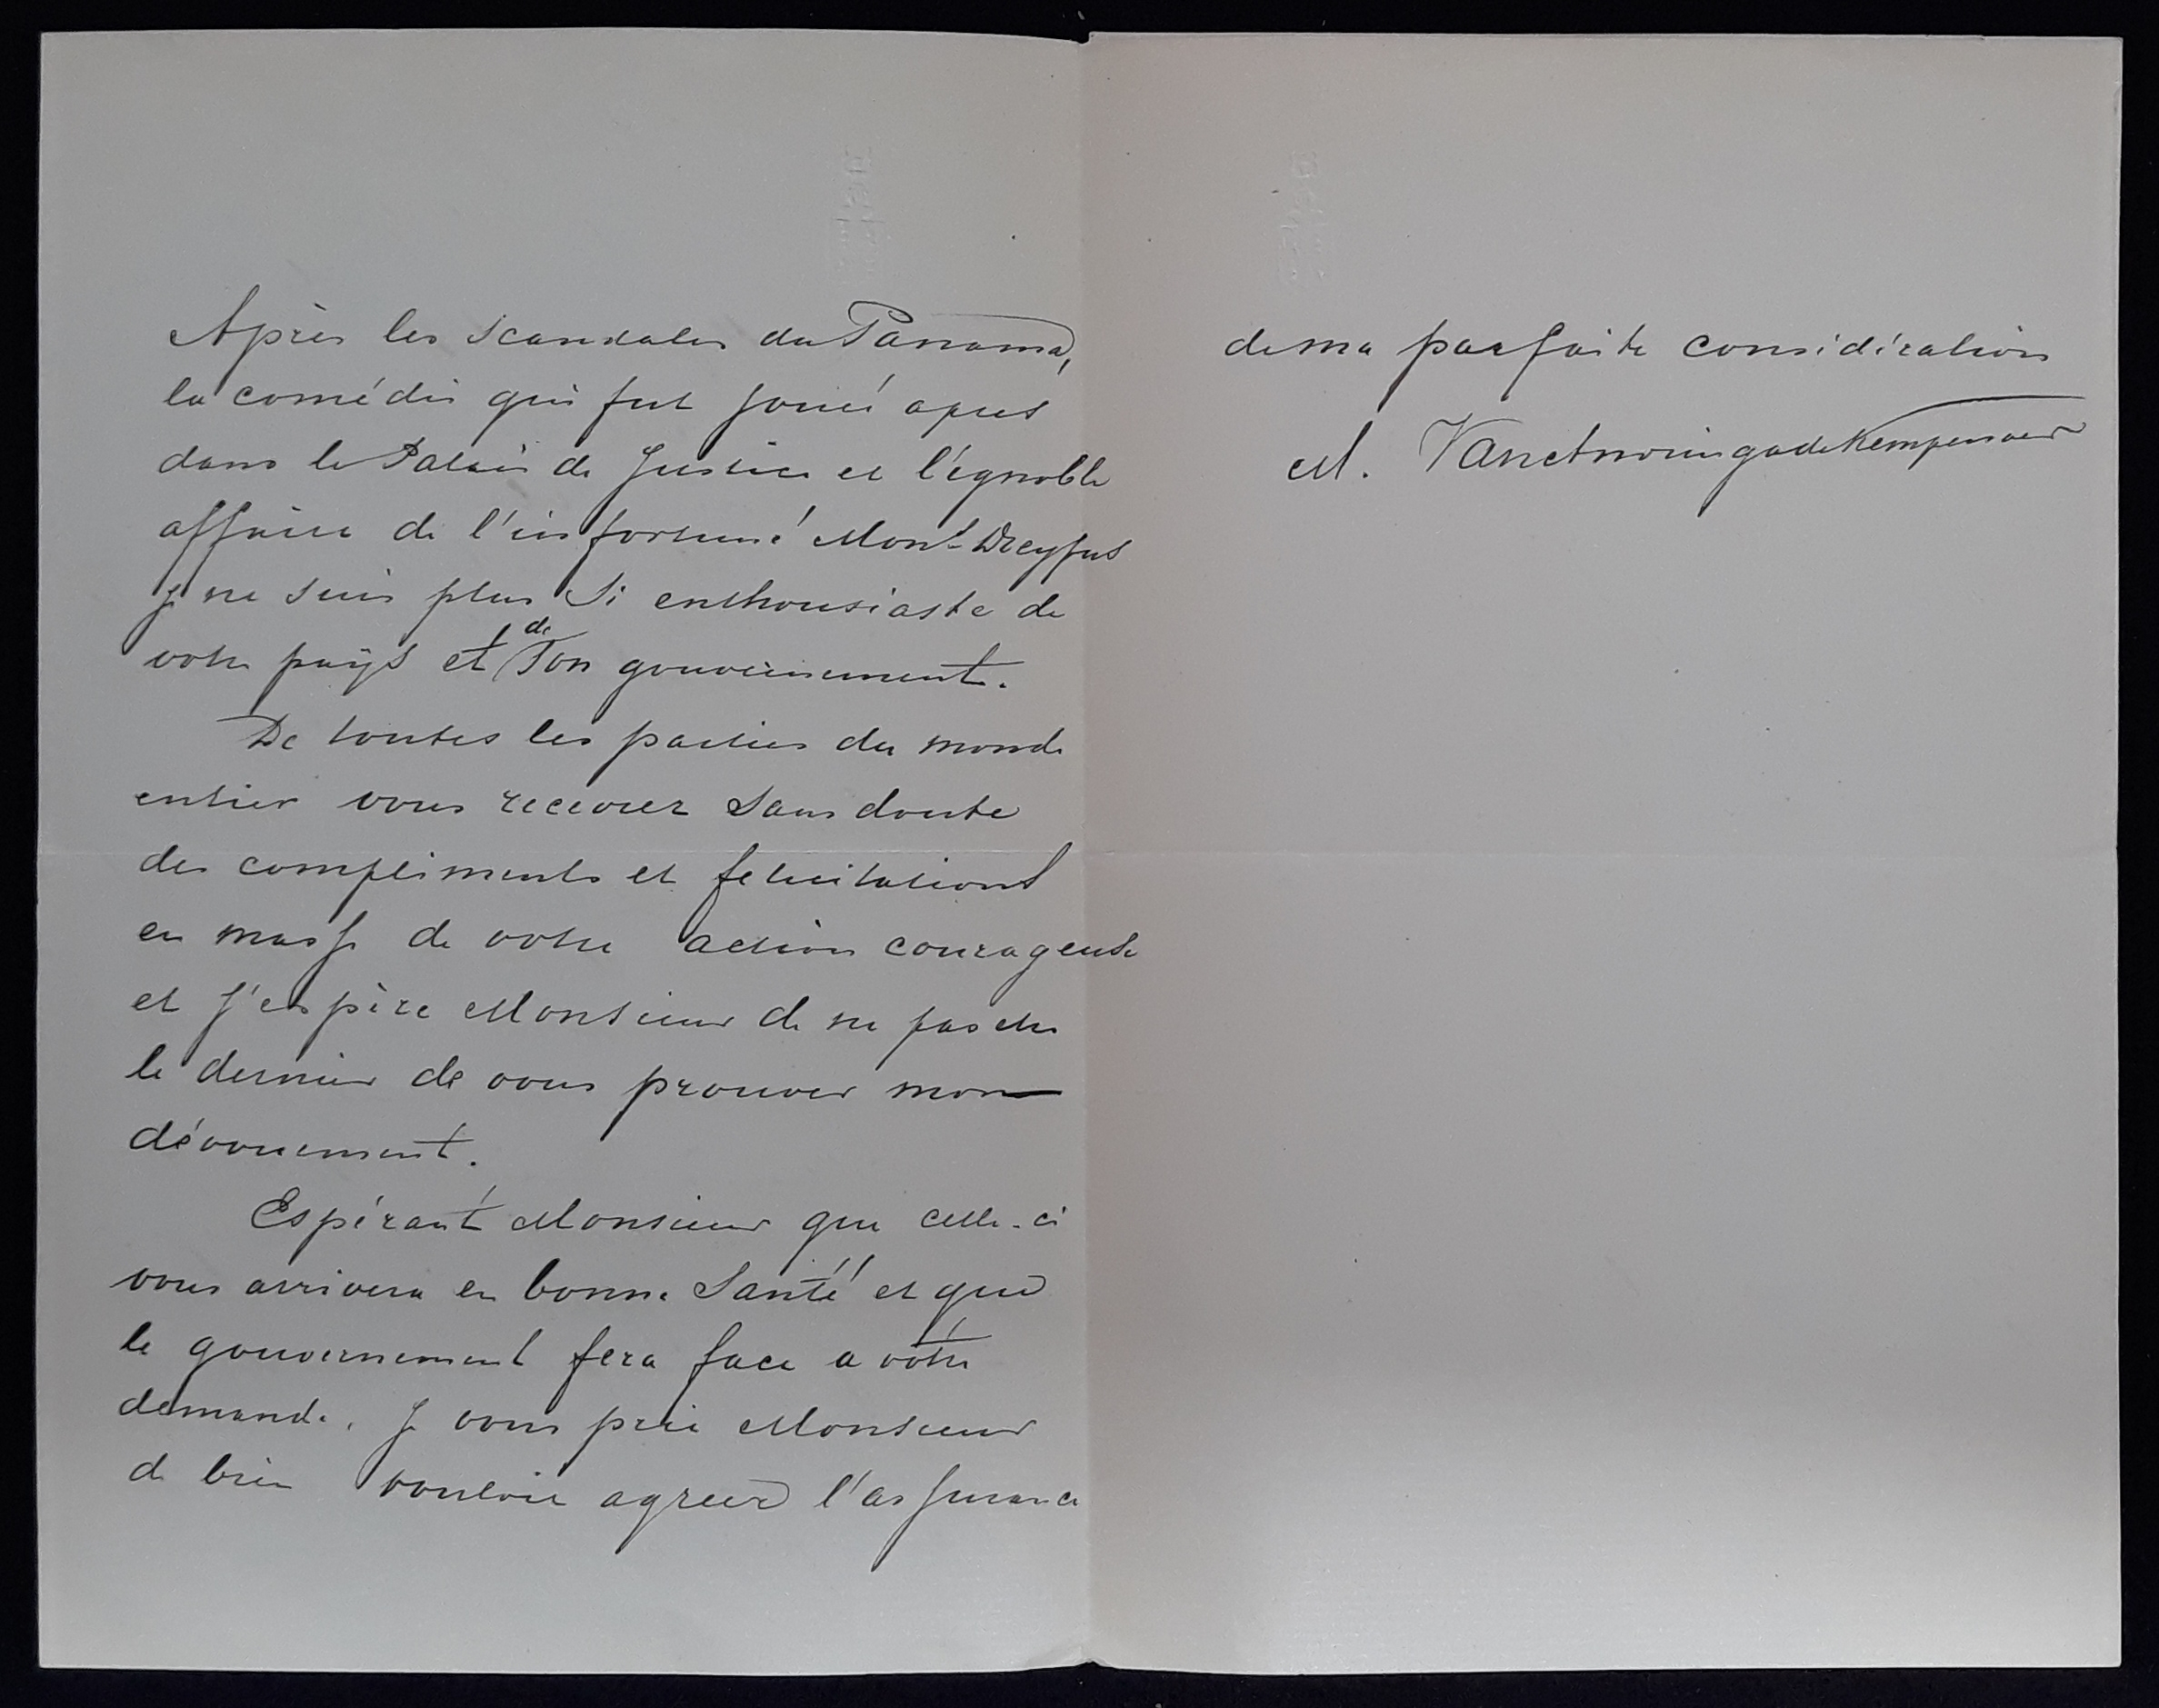 Après les scandales du Panama,
la comédie qui fut joué apres
dans le Palais de Justice et l'ignoble
affaire de l'infortuné Monsr Dreyfus
je ne suis plus si enthousiaste de
votre pays et de son gouvernement.
De toutes les parties du monde
entier vous recevrez sans doute
des compliments et felicitations
en masse de votre action courageuse
et j'espère Monsieur de ne pas etre
le dernier de vous prouver mon
dévouement.
Espérant Monsieur que celle-ci
vous arrivera en bonne Santé et que
le gouvernement fera face a votre
demande. Je vous prie Monsieur
de bien vouloir agreer l'assurance
de ma parfaite considération
M.